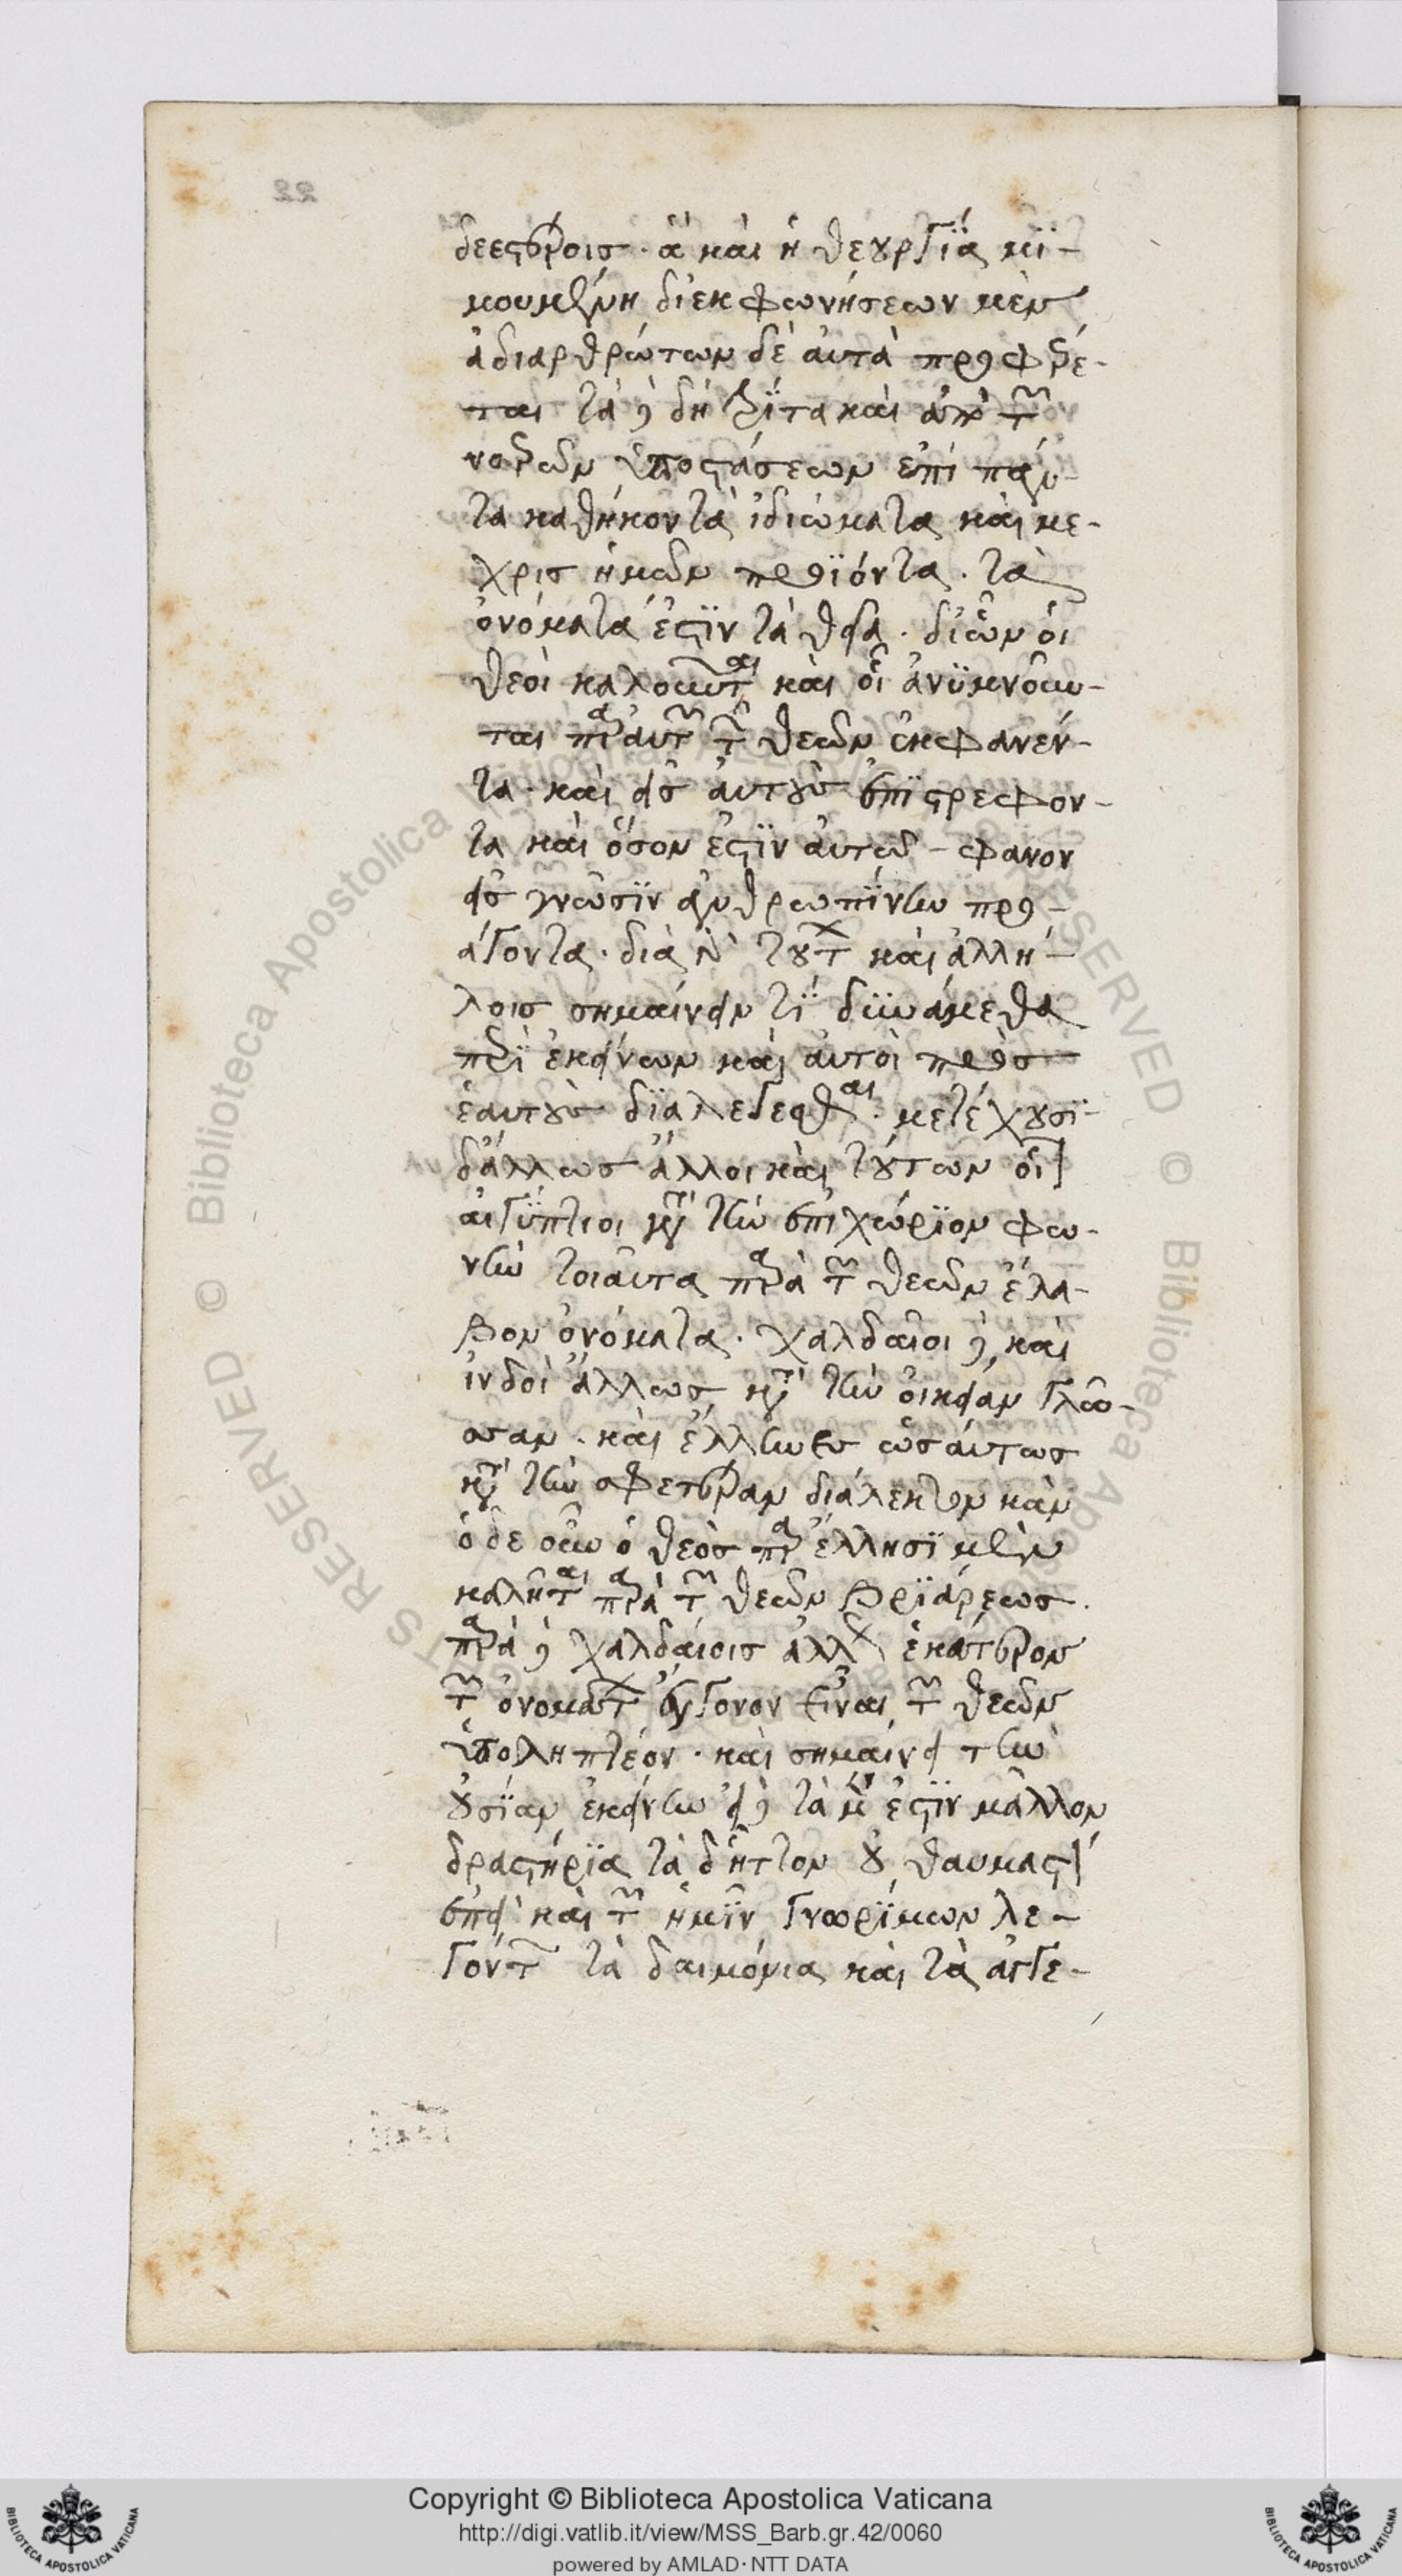 22
δεεστέροις · ἃ καὶ ἡ θεουργΐα μϊ-
μουμένη δι' ἐκφωνήσεων μὲν
ἀδιαρθρώτων δὲ αὐτὰ προφέρε-
ται τὰ δὲ δὴ τρΐτα καὶ ἀπὸ τῶν
νοερῶν ὑποστάσεων ἐπὶ πάν-
τα καθήκοντα ἰδιώματα καὶ με-
χρις ἡμῶν προϊόντα. τὰ
ὀνόματα ἐστϊν τὰ θεῖα. δι' ὧν οἱ
θεοὶ καλοῦνται καὶ οἷ ἀνϋμνοῦν-
ται παρ' αὐτῶν τῶν θεῶν ἐκφανέν-
τα · καὶ εἰς αὐτοὺς ἐπϊστρεφον-
τα καὶ ὅσον ἐστϊν αὐτῶν φανον
εἰς γνῶσϊν ἀνθρωπΐνην προ-
άγοντα. διὰ γὰρ τούτων καὶ ἀλλή-
λοις σημαίνειν τϊ δϋνάμεθα
περϊ ἐκείνων καὶ αὐτοὶ πρὸς
ἑαυτοὺς δϊαλέγεσθαι. μετέχουσϊ
δ' ἄλλως ἄλλοι καὶ τούτων οἷ
αἰγΰπτιοι κατὰ τὴν ἐπιχώρϊον φω-
νὴν τοιαῦτα παρὰ τῶν θεῶν ἔλα-
βον ὀνόματα. χαλδαῖοι δὲ καὶ
ἰνδοὶ ἄλλως κατὰ τὴν οἰκείαν γλῶσ-
σαν. καὶ ἕλληνες ὡσάυτως
κατὰ τὴν σφετέραν διάλεκτον κἂν
ὁδε οὖν ὁ θεὸς παρ' ἕλλησϊ μὲν
καλῆται παρὰ τῶν θεῶν βρϊάρεως.
παρὰ δὲ χαλδαίοις ἄλλως ἑκάτερον
τῶν ὀνομάτων ἔγγονον εἶναι τῶν θεῶν
ὑποληπτέον. καὶ σημαίνει τὴν
οὐσΐαν ἐκείνην εἰ δὲ τὰ μὲν ἐστϊν μᾶλλον
δραστήρϊα τὰ δ' ἧττον οὐ θαυμαστὸν
ἐπεὶ καὶ τῶν ἡμῖν γνωρΐμων λε-
γόντων τὰ δαιμόνια καὶ τὰ ἀγγε-
Copyright © Biblioteca Apostolica Vaticana
http://digi.vatlib.it/view/MSS_Barb.gr.42/0060
powered by AMLAD · NTT DATA